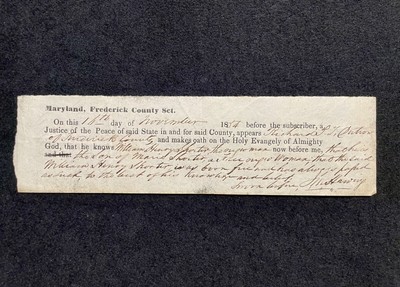 Maryland, Frederick County Sct.
On this 14th day of November 18 before the subscriber, a
Justice of the Peace of said State in and for said County, appears Richard
of Frederick County and makes oath on the Holy Evangely of Almighty
God, that he knows William Henry Shorter the negro man now before me, that he is
and the the Son of Maria Shorter, a Free negro Woman, that the said
William Henry Shorter, was born free and has always passed
as such to the best of his knowledge and belief
Sworn before